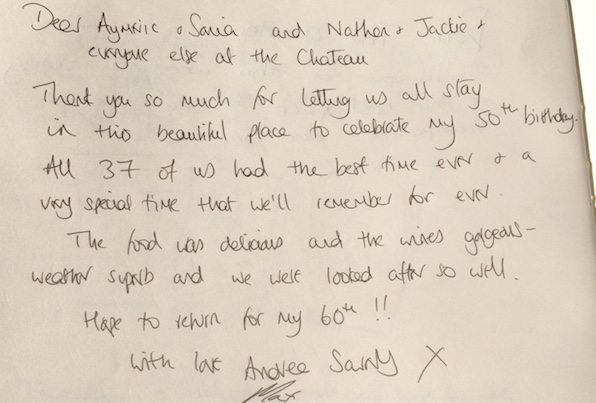 Dear Aymeric & Sonia and Nathan & Jackie &
everyone else at the Chateau
Thank you so much for letting us all stay
in this beautiful place to celebrate my 50th birthday.
All 37 of us had the best time ever & a
very special time that we'll remember for ever.
The food was delicious and the wines gorgeous -
weather superb and we were looked after so well.
Hope to return for my 60th !!
With love Andree X
Max